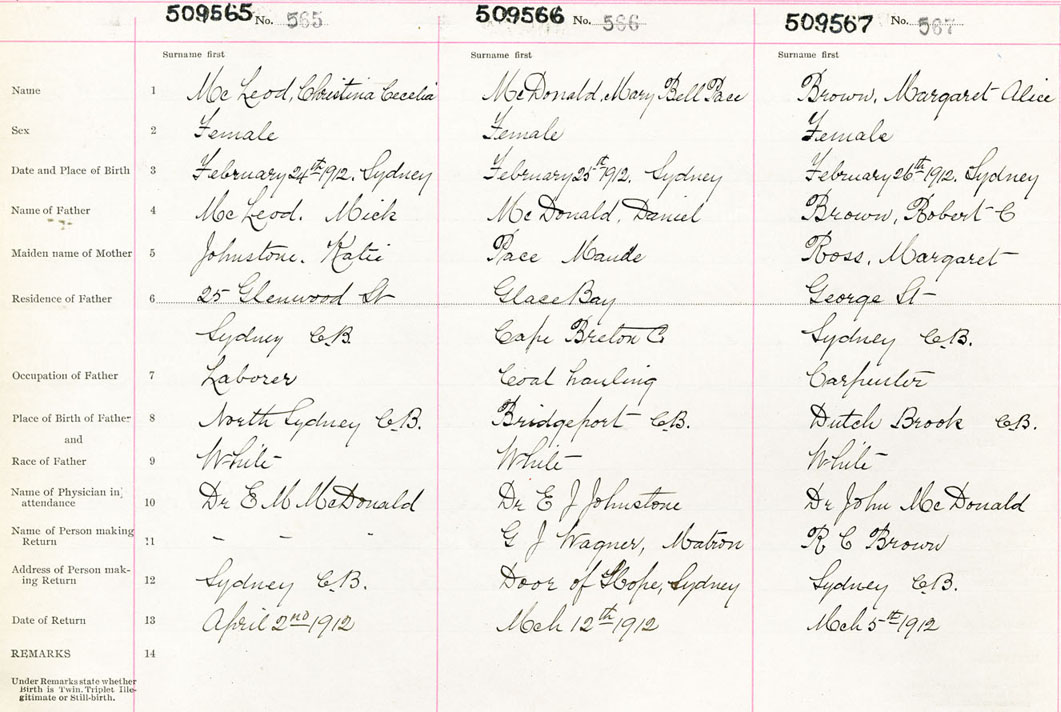 509565 No. 565 509566 No. 566 509567 No. 567
Surname first Surname first Surname first
Name 1 McLeod, Christina Cecelia McDonald, Mary Bell Pace Brown, Margaret Alice
Sex 2 Female Female Female
Date and Place of Birth 3 February 24th 1912. Sydney February 25th 1912. Sydney February 26th 1912. Sydney
Name of Father 4 McLeod. Mick McDonald, Daniel Brown, Robert C
Maiden name of Mother 5 Johnstone. Katie Pace Maude Ross, Margaret
Residence of Father 6 25 Glenwood St Glace Bay George St
Sydney C.B. Cape Breton C Sydney C.B.
Occupation of Father 7 Laborer Coal hauling Carpenter
Place of Birth of Father 8 North Sydney C.B. Bridgeport C.B. Dutch Brook C.B.
and
Race of Father 9 White White White
Name of Physician in attendance 10 Dr E M McDonald Dr E J Johnstone Dr John McDonald
Name of Person making Return 11 - - - G J Wagner, Matron R C Brown
Address of Person mak-
ing Return 12 Sydney C.B. Door of Hope, Sydney Sydney C.B.
Date of Return 13 April 2nd 1912 Mch 12th 1912 Mch 5th 1912
REMARKS 14
Under Remarks state whether
Birth is Twin, Triplet Ille-
gitimate or Still-birth.